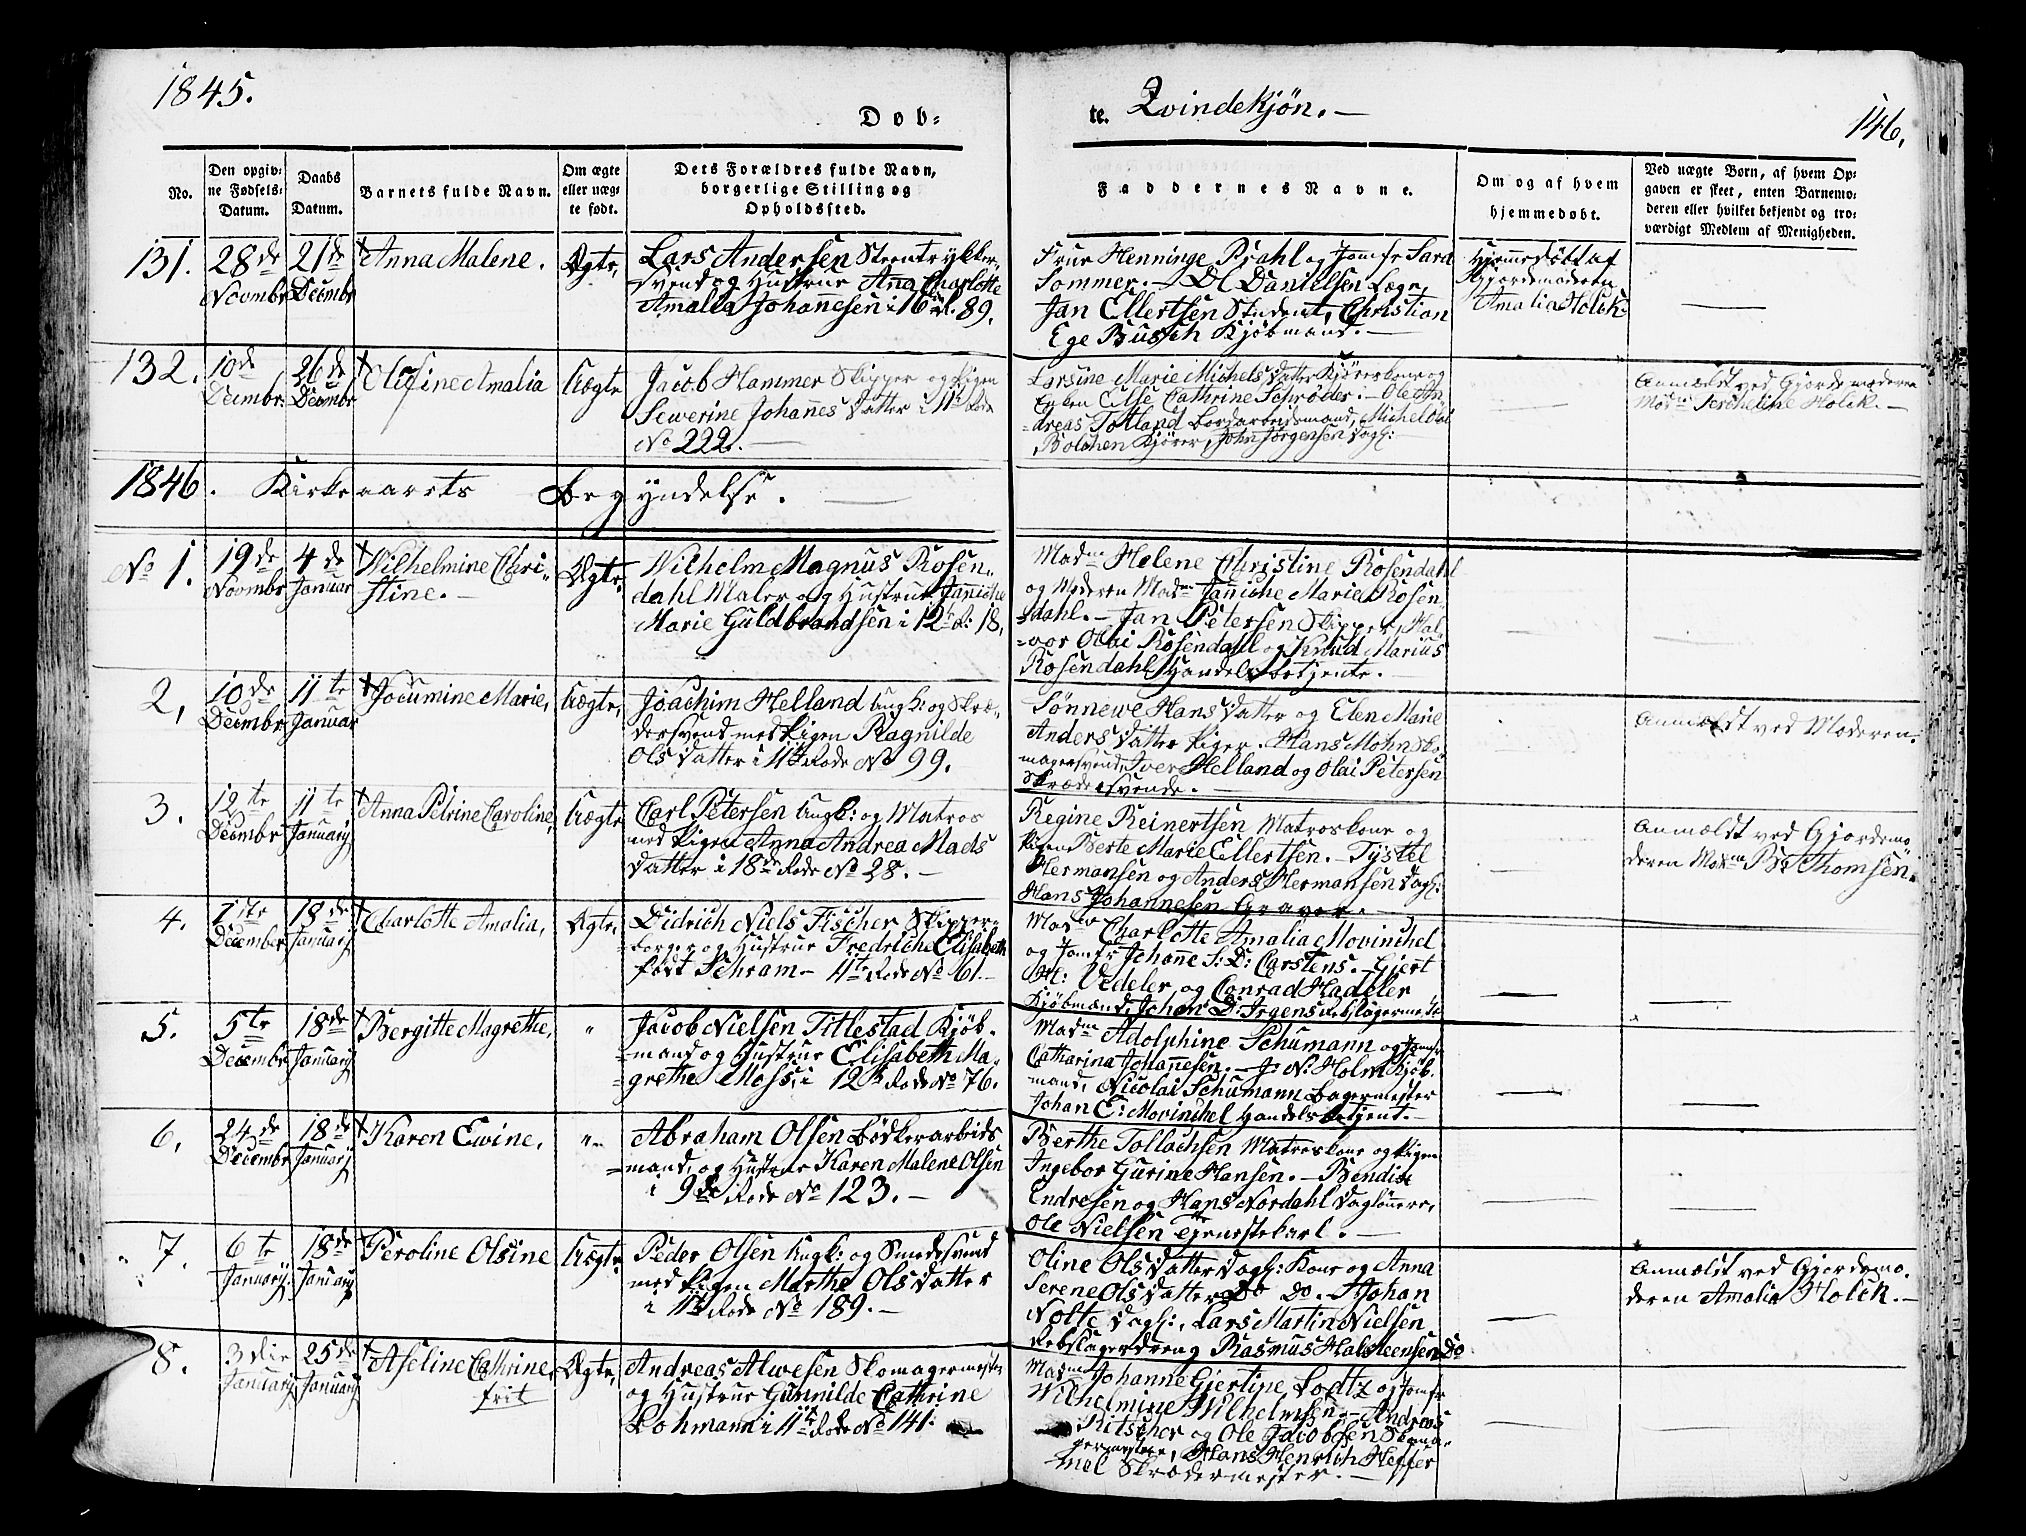 1845.
Döb-
te.
Qvindekjøn. —
146.
No.
Den opgiv-
ne Fødsels-
Datum.
Daabs
Datum.
Barnets fulde Navn.
Om ægte
eller uæg-
te født.
Dets Forældres fulde Navn,
borgerlige Stilling og
Opholdssted.
Faddernes Navne.
Om og af hvem
hjemmedøbt.
Ved uægte Børn, af hvem Op-
gaven er skeet, enten Barnemo-
deren eller hvilket bekjendt og tro-
værdigt Medlem af Menigheden.
131.
28de
Novmbr
21de
Decmbr
Anna Malene.
Ægte,
Lars Andersen Steentrykker-
svend og Hustrue Ana Charlotte
Amalia Johanesen i 16de R. 89.
Frue Henninge Prahl og Jomfr Sara
Sommer. — DC Danielsen Læge,
Jan Ellertsen Student, Christian
Ege Busch Kjøbmand. —
Hjemmedøbt af
Gjordemoderen
Amalia Holck.
132.
10de
Decmbr.
26de
Decmbr
Olefine Amalia
Uægte
Jacob Hammer Skipper og Pigen
Sewerine Johannes Datter i 11te Rode
No 222. —
Larsine Marie Michels Datter Kjørerskone og
Enken Else Cathrine Schrøder. — Ole An-
dreas Totland Borgarbeidsmand, Michel
Bolchen Kjører, John Jørgensen Dagl:
Anmældt ved Gjordemoderen
Madme Holck. —
1846. Kirkeaarets Begyndelse. —
No 1.
19de
Novmbr
4de
Januar
Wilhelmine Chri-
stine. —
Ægte,
Wilhelm Magnus Rosen-
dahl Maler og Hustrue Janiche
Marie Guldbrandsen i 12te R. 18.
Madme Helene Christine Rosendahl
og Moderen Madme Janiche Marie Rosen-
dahl. — Jan Petersen Skipper, Hal-
vor Olai Rosendahl og Knud Marius
Rosendahl Handelsbetjente. —
2,
10de
Decmbr
11te
Januar
Jocumine Marie,
Uægte,
Joachim Helland Ungk: og Skræ-
dersvend med Pigen Ragnilde
Ols Datter i 11te Rode No 99.
Sønnewe Hans Datter og Elen Marie
Anders Datter Piger. Hans Mohn Sko-
magersvend, Iver Helland og Olai Petersen
Skrædersvende. —
Anmældt ved Moderen.
3.
12te
Decmbr
11te
January
Anna Petrine Caroline,
Uægte
Carl Petersen Ungk: og Matros
med Pigen Anna Andrea Mads
Datter i 18de Rode No 28. —
Regine Reinertsen Matroskone og
Pigen Berte Marie Ellertsen. — Tystel
Hermansen og Anders Hermansen Dagl:
Hans Johannesen Graver. —
Anmældt ved Gjordemo-
deren Madme Thomsen.
4.
1te
December
18de
January
Charlotte Amalia,
Ægte,
Didrich Niels Fischer Skipper-
borger og Hustrue Fredriche Elisabeth
født Schram — 4te Rode No 61. —
Madme Charlotte Amalia Mowinchel
og Jomfr Johanne S: D: Carstens. — Gjert
H: Vedeler og Conrad Hadeler
Kjøbmænd, Johan D: Irgens Rebslagerme.
5.
5te
Decembr
18de
January
Bergitte Magrethe,
"
Jacob Nielsen Titlestad Kjøb-
mand og Hustrue Elisabeth Ma-
grethe Moss, i 12te Rode No 76.
Madme Adolphine Schumann og Jomfr
Catharina Johannesen. — J. N: Holm Kjøb-
mand, Nicolai Schumann Bagermester
Johan E: Mowinchel Handelsbetjent. —
6,
24de
Decembr
18de
January
Karen Ewine,
"
Abraham Olsen Bødkerarbeids-
mand, og Hustrue Karen Malene Olsen
i 9de Rode No 123. —
Berthe Tollachsen Matroskone og Pigen
Ingebor Gurine Hansen. — Bendix
Endresen og Hans Nordahl Daglønnere,
Ole Nielsen Tjenestekarl. —
7.
6te
January.
18de
January
Peroline Olsine
Uægte,
Peder Olsen Ungk: og Smedesvend
med Pigen Marthe Ols Datter
i 11te Rode No 189. —
Oline Ols Datter Dagl: Kone og Anna
Serene Ols Datter Do Do. — Johan
Nolte Dagl:, Lars Martin Nielsen
Rebslagerdreng Rasmus Halsteensen Do
Anmældt ved Gjordemo-
deren Amalia Holck. —
8.
3die
January
25de
January
Aseline Cathrine,
frit
Ægte,
Andreas Alwesen Skomagermester
og Hustrue Gunnilde Cathrine
Lohmann i 11te Rode No 141.
Madme Johanne Gjertine Lodtz og Jomfr
Wilhelmine Wilhelmsen. — Andreas
Ritscher og Ole Jacobsen Skoma-
germestere, Hans Henrich Heffer
mel Skrædermester. —